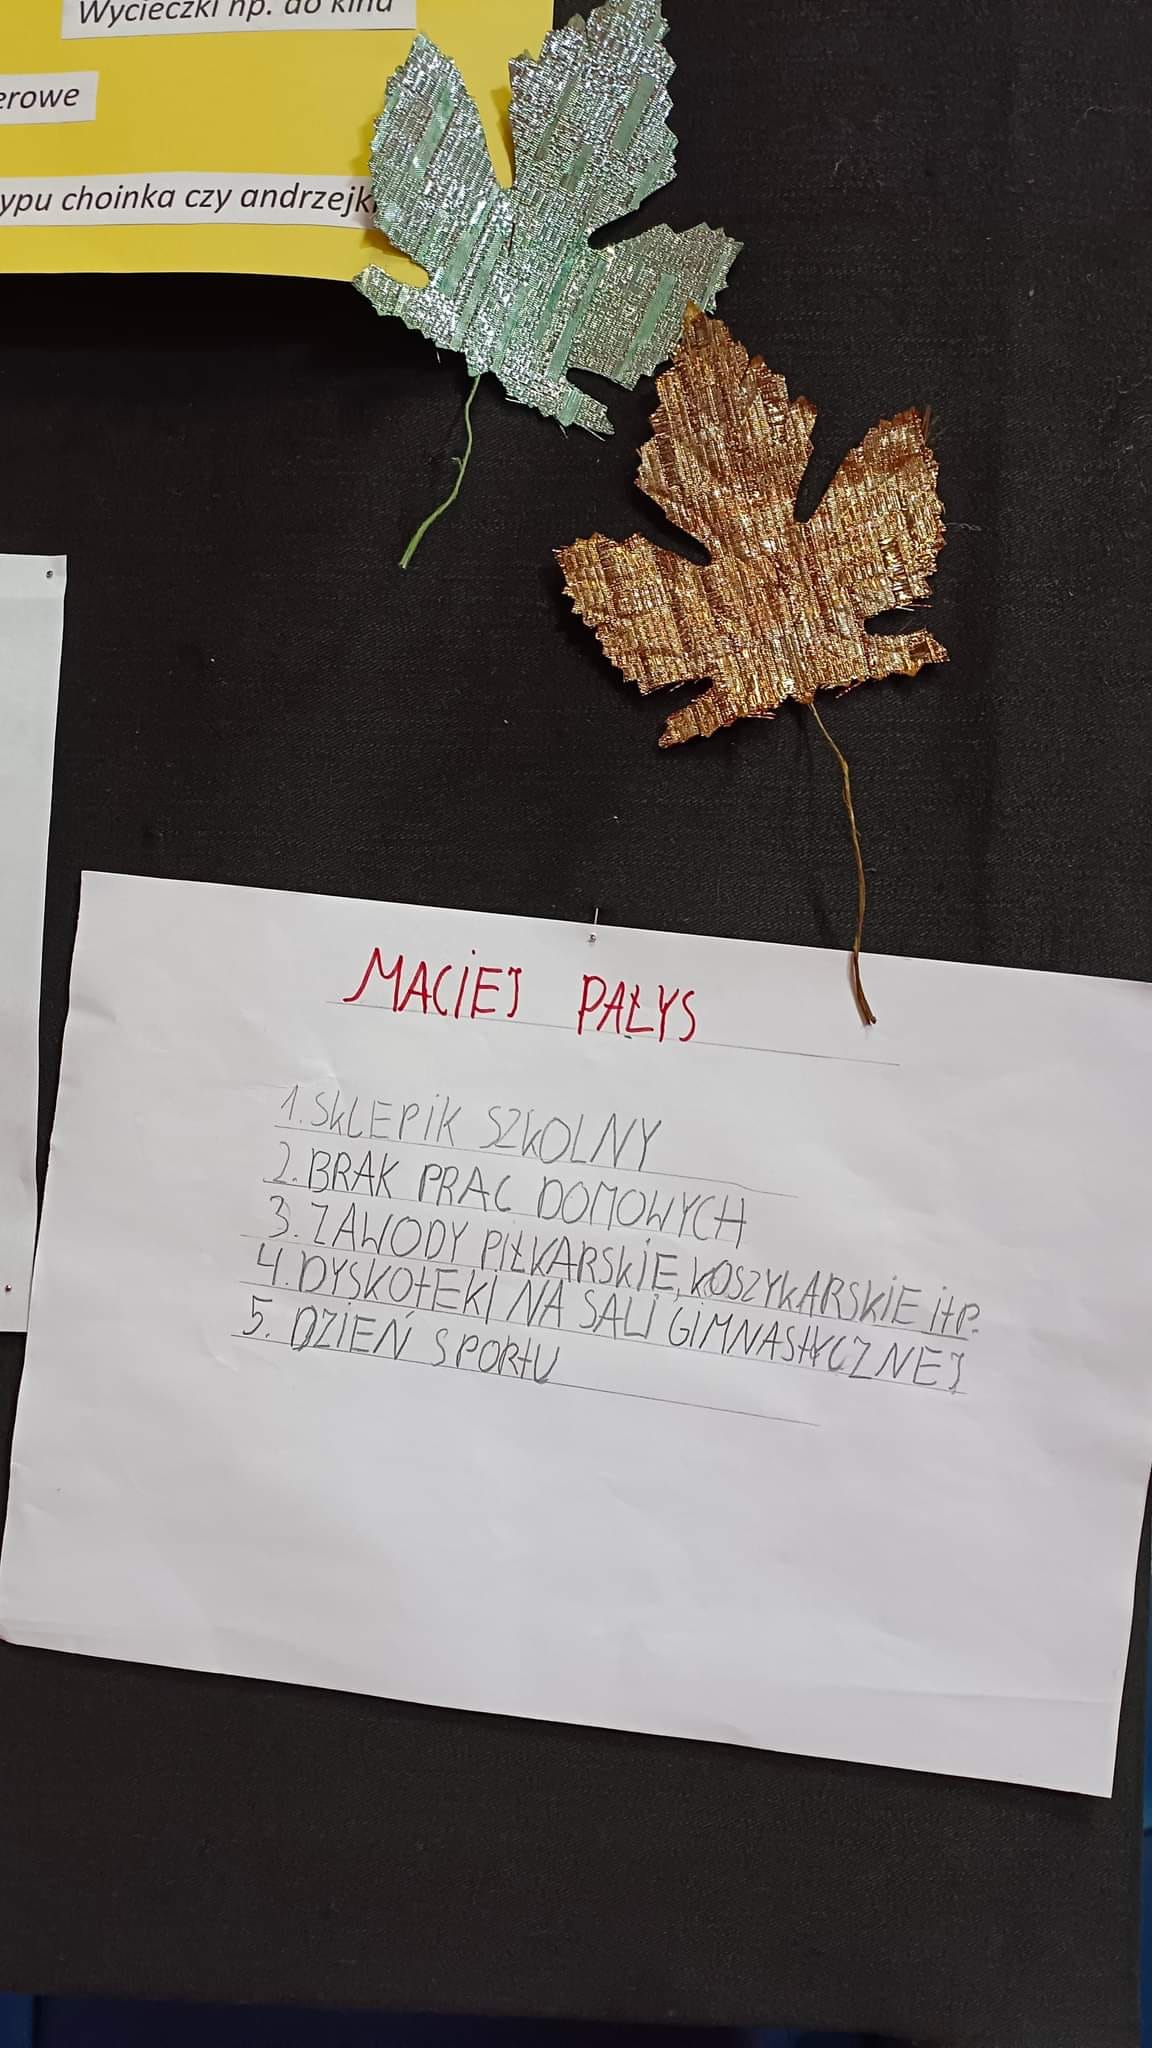 Wycieczki np. do kina
erowe
ypu choinka czy andrzejki
MACIEJ PAŁYS
1. SKLEPIK SZKOLNY
2. BRAK PRAC DOMOWYCH
3. ZAWODY PIŁKARSKIE, KOSZYKARSKIE itp.
4. DYSKOtEKI NA SALI GIMNAStYCZNEJ
5. DZIEŃ SPORtU